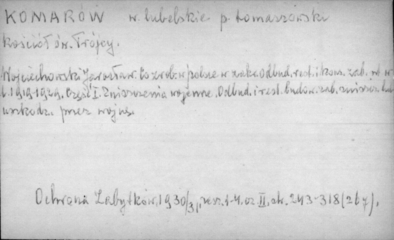 KOMARÓW w. lubelskie p. tomaszowski
Kościół św. Trójcy.
Wojciechowski Jarosław. Co zrobiono w Polsce w zakr. odbud. rest. i kons. zab. w
l. 1919-1929. Część I. Zniszczenia wojenne. Odbud. i rest. budow. zab. zniszcz. lub
uszkodz. przez wojnę.
Ochrona Zabytków, 1930/31, zesz. 1-4. cz II, str. 243-318 (267).